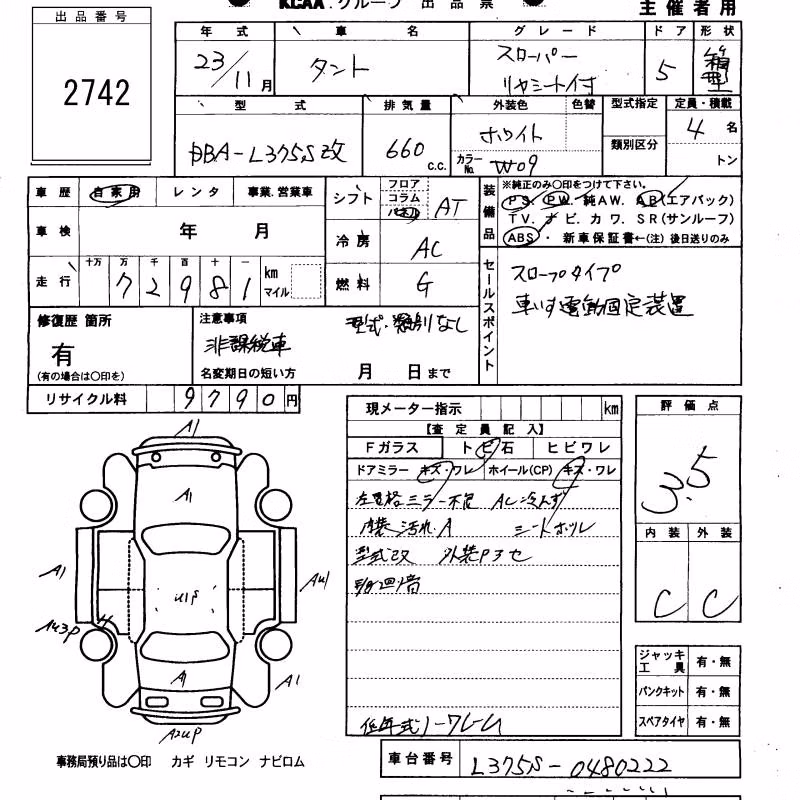 KCAA.グループ 出品票
主催者用
出品番号
2742
年式 車名 グレード ドア 形状
23/11月 タント スローパー
リヤシート付 5 箱型
型式 排気量 外装色 色替 型式指定 定員・積載
DBA-L375S改 660 C.C. ホワイト 4名
カラーNo. W09 類別区分 トン
車歴 自家用 レンタ 事業.営業車
シフト フロア コラム パネル AT
装備品 ※純正のみ○印をつけて下さい。
PS. PW. 純AW. AB(エアバック)
TV. ナビ. カワ. SR(サンルーフ)
ABS・ 新車保証書←(注) 後日送りのみ
車検 年 月
冷房 AC
走行 十万 万 千 百 十 一
72981 km マイル
燃料 G
セールスポイント
スロープタイプ
車いす電動固定装置
修復歴 箇所
有
(有の場合は○印を)
注意事項 型式・類別なし
非課税車
名変期日の短い方 月 日まで
リサイクル料 9790円
現メーター指示 km
【査定員記入】
Fガラス トビ石 ヒビワレ
ドアミラー キズ・ワレ ホイール(CP) キズ・ワレ
ミラー不良 AC冷えず
内装汚れA シートホツレ
型式改
低年式
評価点
3.5
内装 外装
C C
ジャッキ工具 有・無
パンクキット 有・無
スペアタイヤ 有・無
A1
A1
A1
U1P
AU1
AU3P
A1
A1
A2UP
事務局預り品は○印 カギ リモコン ナビロム
車台番号 L375S-0480222